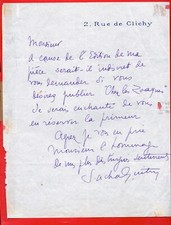 2. Rue de Clichy
Monsieur
à cause de l'Edition de ma
pièce serait-il indiscret de
vous demander si vous
désirez publier "Chez les Zoaques"
Je serais enchanté de vous
en réserver la primeur
Agréez je vous en prie
Monsieur l'hommage
de mes plus distingués sentiments
Sacha Guitry